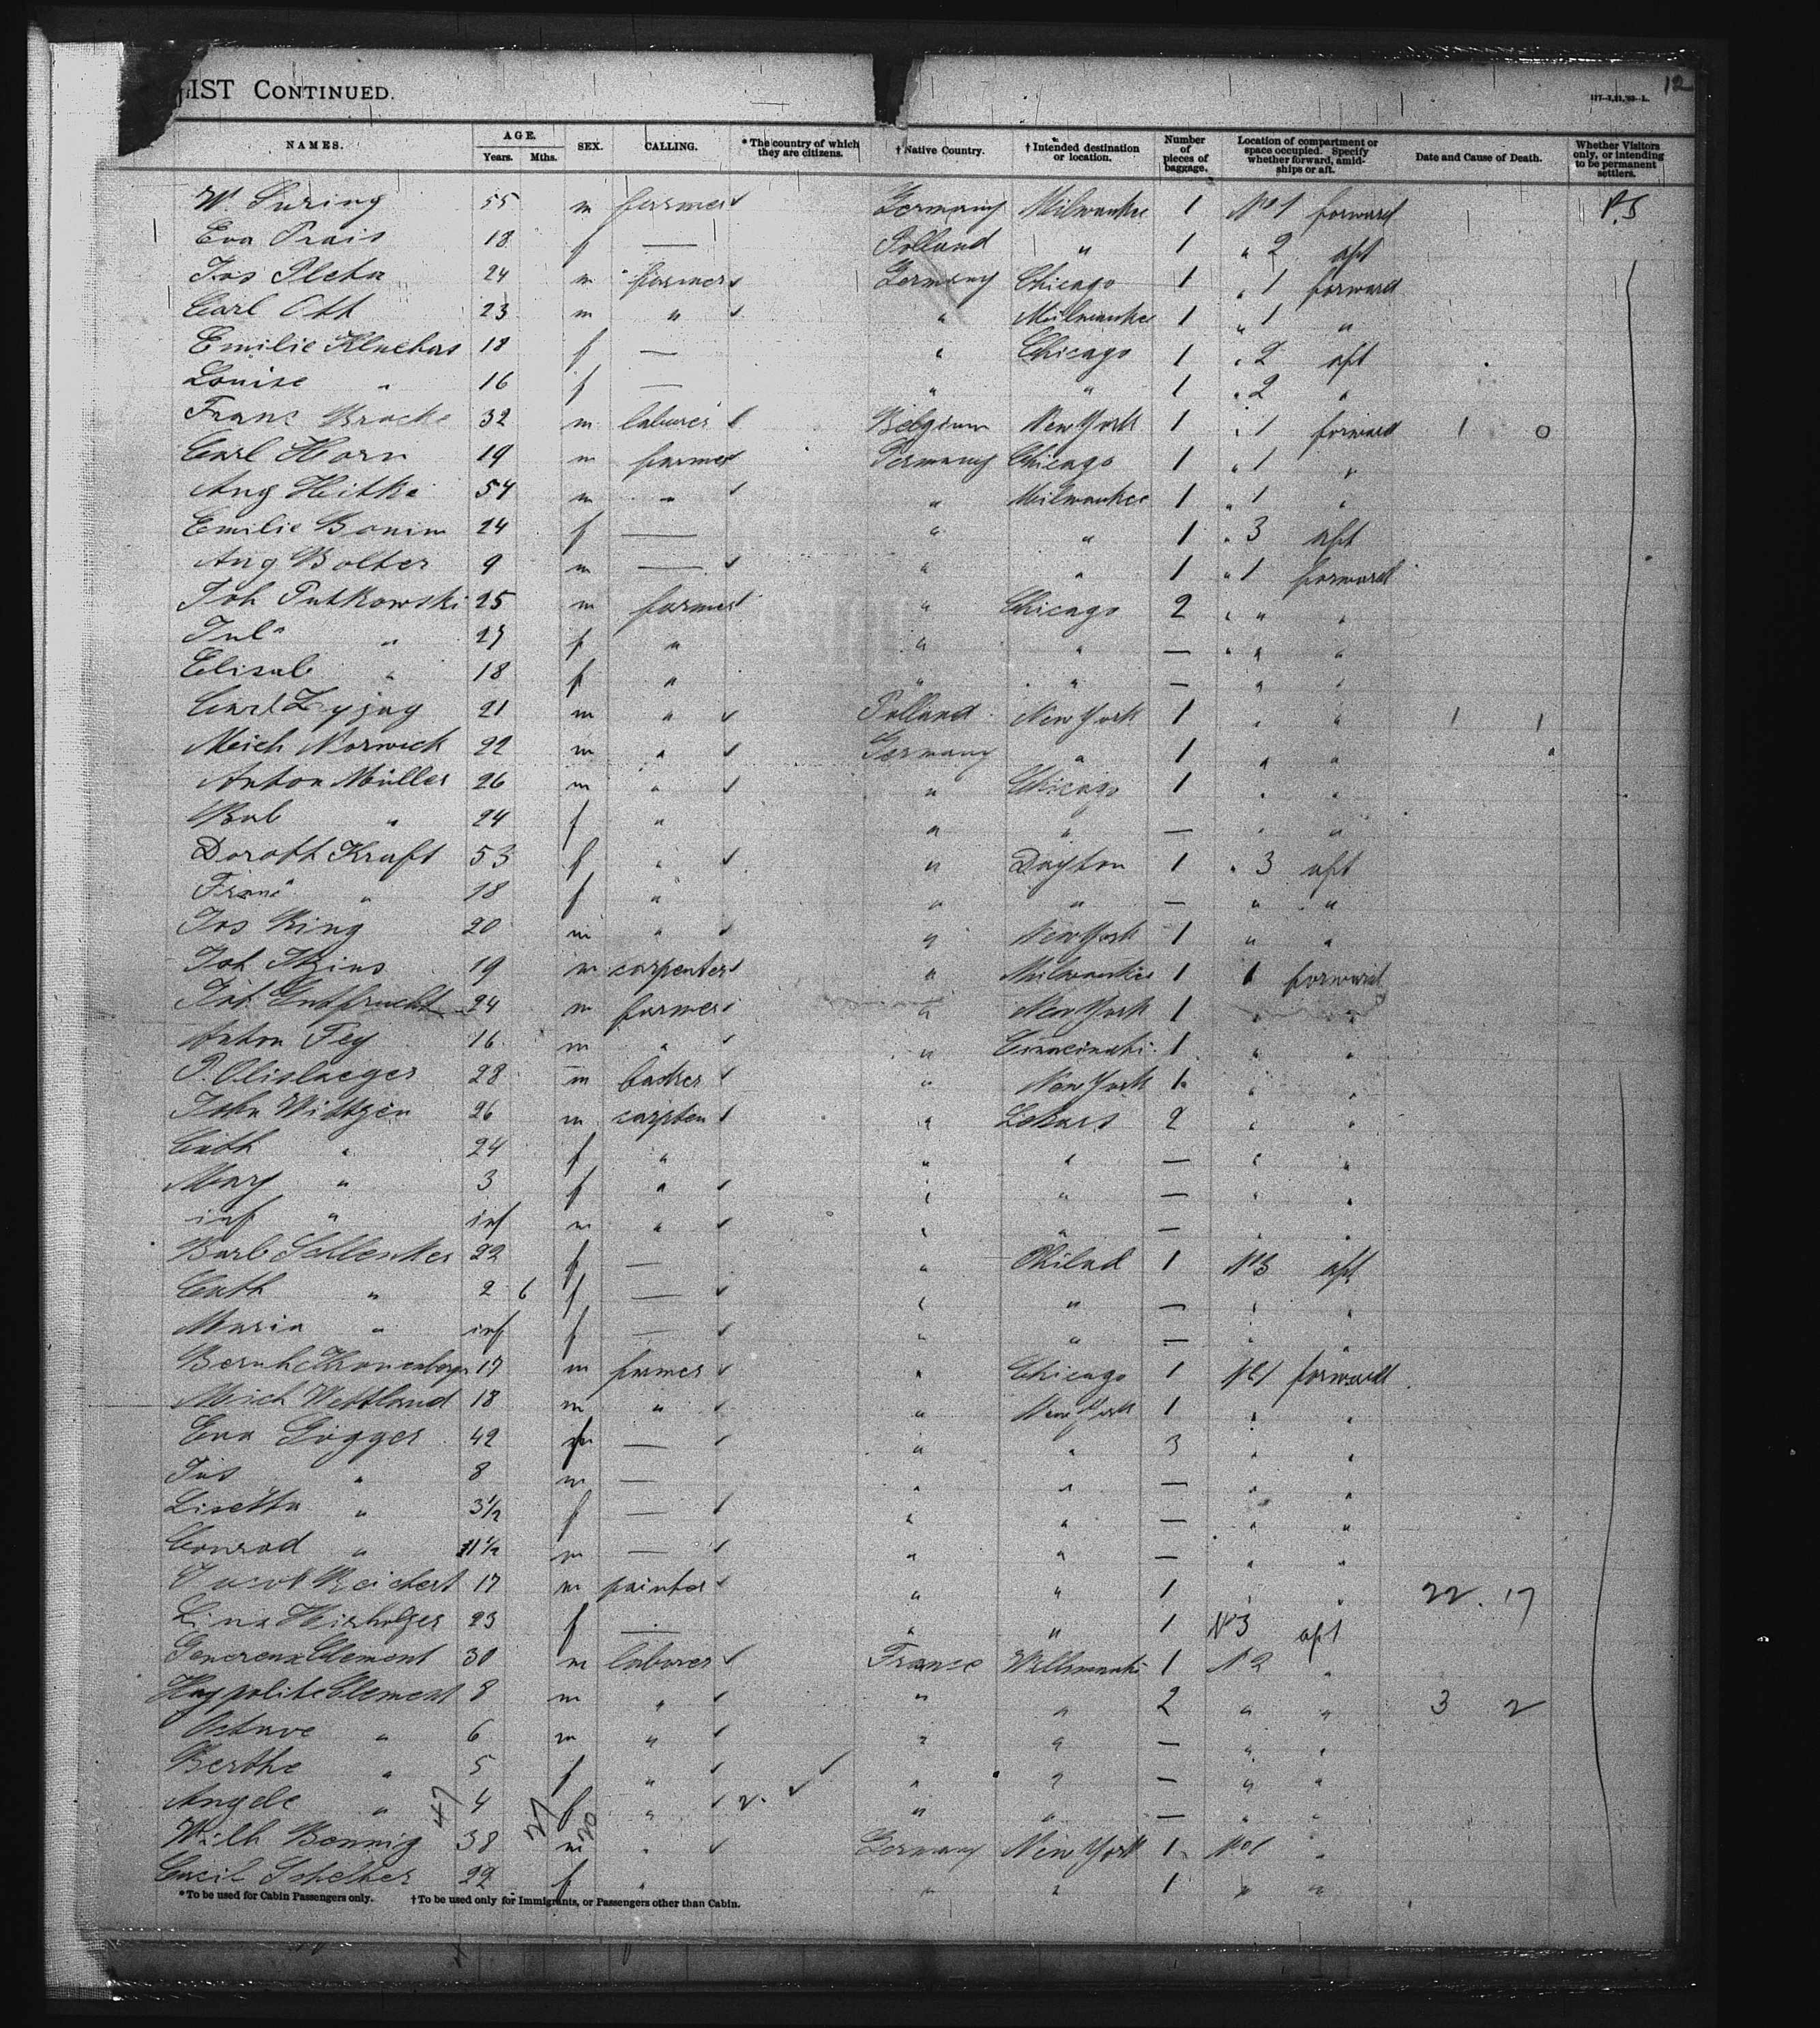 12
IST CONTINUED.
117-3,21,'93-L.
NAMES. AGE. Years. Mths. SEX. CALLING. *The country of which they are citizens. †Native Country. †Intended destination or location. Number of pieces of baggage. Location of compartment or space occupied. Specify whether forward, amidships or aft. Date and Cause of Death. Whether Visitors only, or intending to be permanent settlers.
W 55 m farmer Germany Milwaukee 1 No 1 forward P.S
Eva Prais 18 f — Polland " 1 " 2 aft
Jos Pleta 24 m farmer Germany Chicago 1 " 1 forward
Carl Ott 23 m " " Milwaukee 1 " 1 "
Emilie 18 f — " Chicago 1 " 2 aft
Louise " 16 f — " " 1 " 2 "
Franz Bracke 32 m laborer Belgium New York 1 " 1 forward 1 0
Carl Horn 19 m farmer Germany Chicago 1 " 1 "
Aug Heitke 54 m " " Milwaukee 1 " 1 "
Emilie Bonin 24 f — " " 1 " 3 aft
Aug Bolter 9 m — " " 1 " 1 forward
Joh Putkowski 25 m farmer " Chicago 2 " " "
Jul " 27 f " " " — " " "
Elisab " 18 f " " " — " "
Carl 21 m " Polland New York 1 " " 1 1
Mich Norweck 22 m " Germany " 1 " "
Anton Müller 26 m " " Chicago 1 " "
Bab " 24 f " " " — " "
Doroth Kraft 53 f " " Dayton 1 " 3 aft
Franc " 18 f " " " — " "
Jos Ring 20 m " " New York 1 " "
Joh 19 m carpenter " Milwaukee 1 1 forward
Joh Gutfrucht 24 m farmer " New York 1 " "
Anton Fey 16 m " " Cinncinati 1 " "
P. Olislaeger 28 m backer " New York 1 " "
John Wittgen 26 m carpten " 2 " "
Cath " 24 f " " " — " "
Mary " 3 f " " " — " "
inf " inf m " " " — " "
Barb Schlenker 22 f — " Philad 1 No 3 aft
Cath " 2 6 f — " " — " "
Maria " inf f — " " — " "
Bernh Kronenberg 17 m farmer " Chicago 1 No 1 forward
Mich Wettland 18 m " " New York 1 " "
Eva Gogger 42 f — " " 3 " "
Jos " 8 m — " " — " "
Lisetta " 3½ f — " " — " "
Conrad " 11½ m — " " — " "
Jacob Reichert 17 m painter " " 1 " " 22. 17
Lina 23 f — " " 1 No 3 aft
Clement 30 m laborer France 1 No 2 "
Hyppolite Clement 8 m " " " 2 " " 3 2
Octave " 6 m " " " — " "
Berthe " 5 f " " " — " "
Angele " 4 f " 2. " " — " "
47 27 20
Wilh Bennig 38 m " Germany New York 1 No 1 "
Cecil 22 f " " " 1 " "
*To be used for Cabin Passengers only. †To be used only for Immigrants, or Passengers other than Cabin.